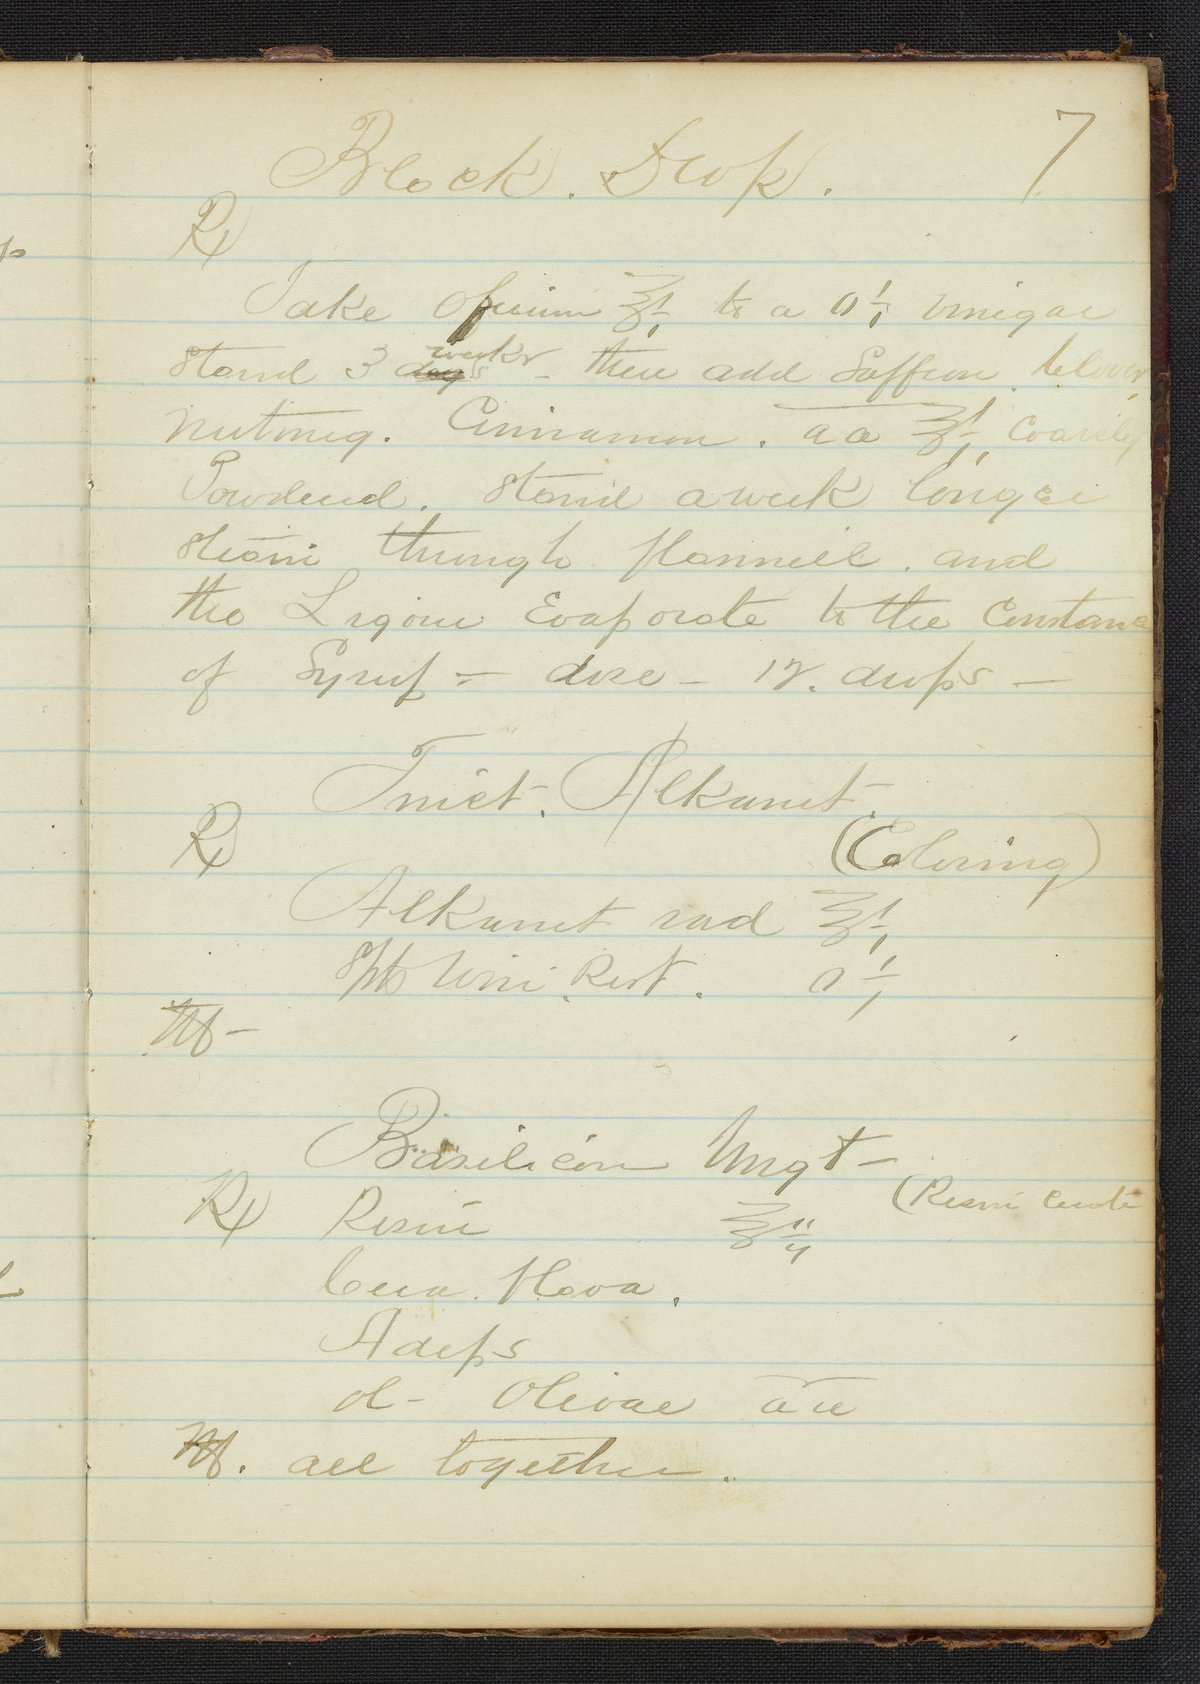 7
Black. Drop.
℞
Take Opium ℥i to a O i Vinigar
Stand 3 weeks – then add Saffron Cloves,
Nutmeg. Cinnamon. aa ℥i Coarsely
Powdered. Stand a week longer
Strain through flannell. and
the Liqour Evaporate to the Constance
of Syrup – dose – 12. drops –
Tinct. Alkanet.
℞ (Coloring)
Alkanet rad ℥i
Spts Vini. Rect. O i
M –
Basilicon Ungt –
(Resin Cerate
℞ Resin ℥ii
Cera. flava.
Adeps
Ol – Olivae aa
M. all together.